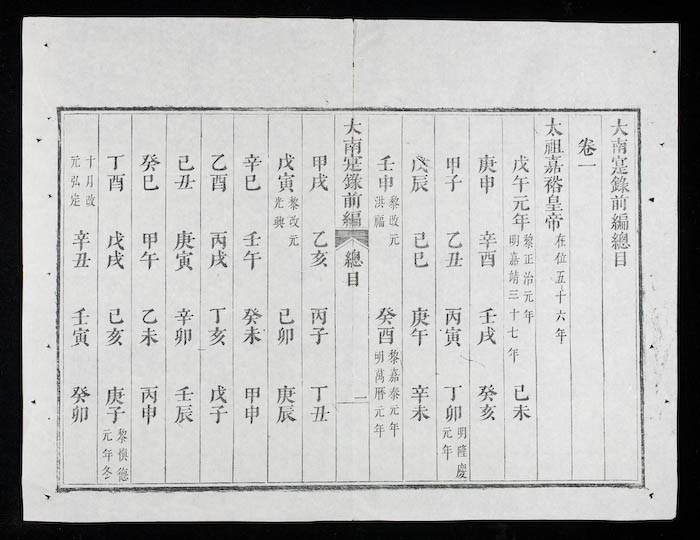 大南寔錄前編總目
卷一
太祖嘉裕皇帝在位五十六年
戊午元年黎正治元年明嘉靖三十七年 己未
庚申 辛酉 壬戌 癸亥
甲子 乙丑 丙寅 丁卯明隆慶元年
戊辰 己巳 庚午 辛未
壬申黎改元洪福 癸酉黎嘉泰元年明萬曆元年
大南寔錄前編 總目 一
甲戌 乙亥 丙子 丁丑
戊寅黎改元光興 己卯 庚辰
辛巳 壬午 癸未 甲申
乙酉 丙戌 丁亥 戊子
己丑 庚寅 辛卯 壬辰
癸巳 甲午 乙未 丙申
丁酉 戊戌 己亥 庚子黎慎德元年冬
十月改元弘定 辛丑 壬寅 癸卯